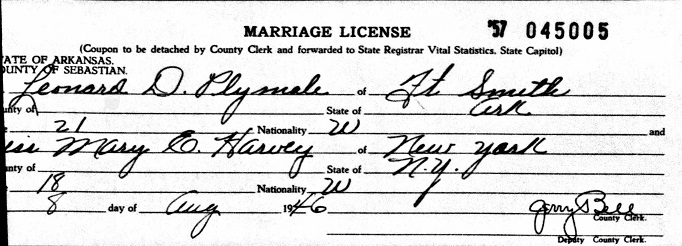 MARRIAGE LICENSE '57 045005
(Coupon to be detached by County Clerk and forwarded to State Registrar Vital Statistics, State Capitol)
ATE OF ARKANSAS,
OUNTY OF SEBASTIAN.
Leonard D. Plymale of Ft Smith
unty of State of Ark
21 Nationality W and
iss Mary E. Harvey of New York
unty of State of N.Y.
18 Nationality W
8 day of Aug 1946 Jerry Bell
County Clerk.
Deputy County Clerk.